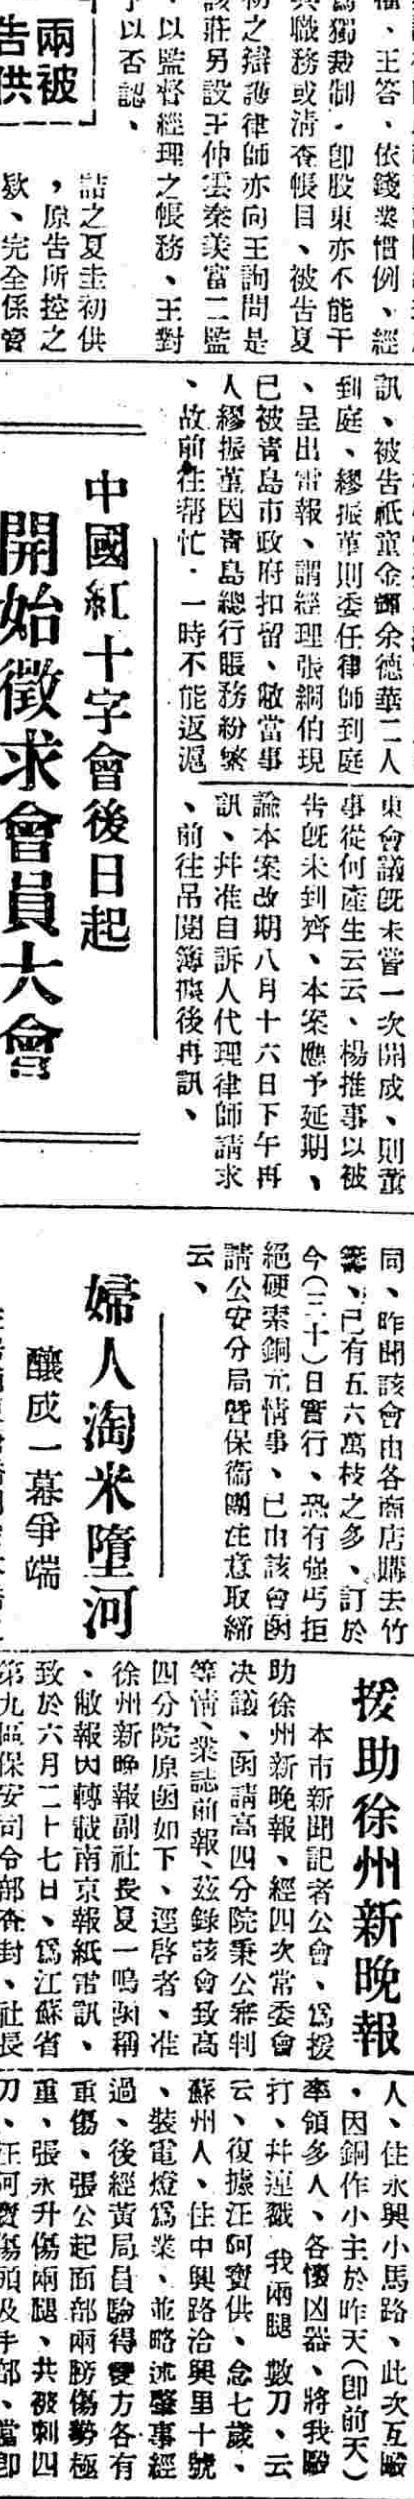 、王答、依錢業慣例、經
爲獨裁制、卽股東亦不能干
職務或清查帳目、被告夏
初之辯護律師亦向王詢問是
該莊另設王仲雲秦美富二監
、以監督經理之帳務、王對
予以否認、
兩被
告供
詰之夏圭初供
，原告所控之
欵、完全係管
訊、被告祇童金輝余德華二人
到庭、繆振菫則委任律師到庭
、呈出電報、謂經理張絅伯現
已被靑島市政府扣留、敝當事
人繆振菫因靑島總行賬務紛繁
、故前往幫忙．一時不能返滬
東會議旣未嘗一次開成、則董
事從何產生云云、楊推事以被
告旣未到齊、本案應予延期、
諭本案改期八月十六日下午再
訊、幷准自訴人代理律師請求
、前往吊閱簿據後再訊、
中國紅十字會後日起
開始徵求會員大會
同、昨聞該會由各商店購去竹
籌、已有五六萬枝之多、訂於
今(三十)日實行、恐有強丐拒
絕硬索銅元情事、已由該會函
請公安分局曁保衞團注意取締
云、
婦人淘米墮河
釀成一幕爭端
援助徐州新晚報
本市新聞記者公會、爲援
助徐州新晚報、經四次常委會
决議、函請高四分院秉公審判
等情、業誌前報、茲錄該會致高
四分院原函如下、逕啓者、准
徐州新晚報副社長夏一鳴函稱
、敝報因轉載南京報紙電訊、
致於六月二十七日、爲江蘇省
第九區保安司令部查封、社長
人、住永興小馬路、此次互毆
、因銅作小主於昨天(卽前天)
率領多人、各懷凶器、將我毆
打、幷連戳 我兩腿 數刀、云
云、復據汪阿寶供、念七歲、
蘇州人、住中興路洽興里十號
、裝電燈爲業、並略述肇事經
過、後經黃局員驗得雙方各有
重傷、張公起面部兩膀傷勢極
重、張永升傷兩腿、共被刺四
刀、汪阿寶傷頭及手部、當卽